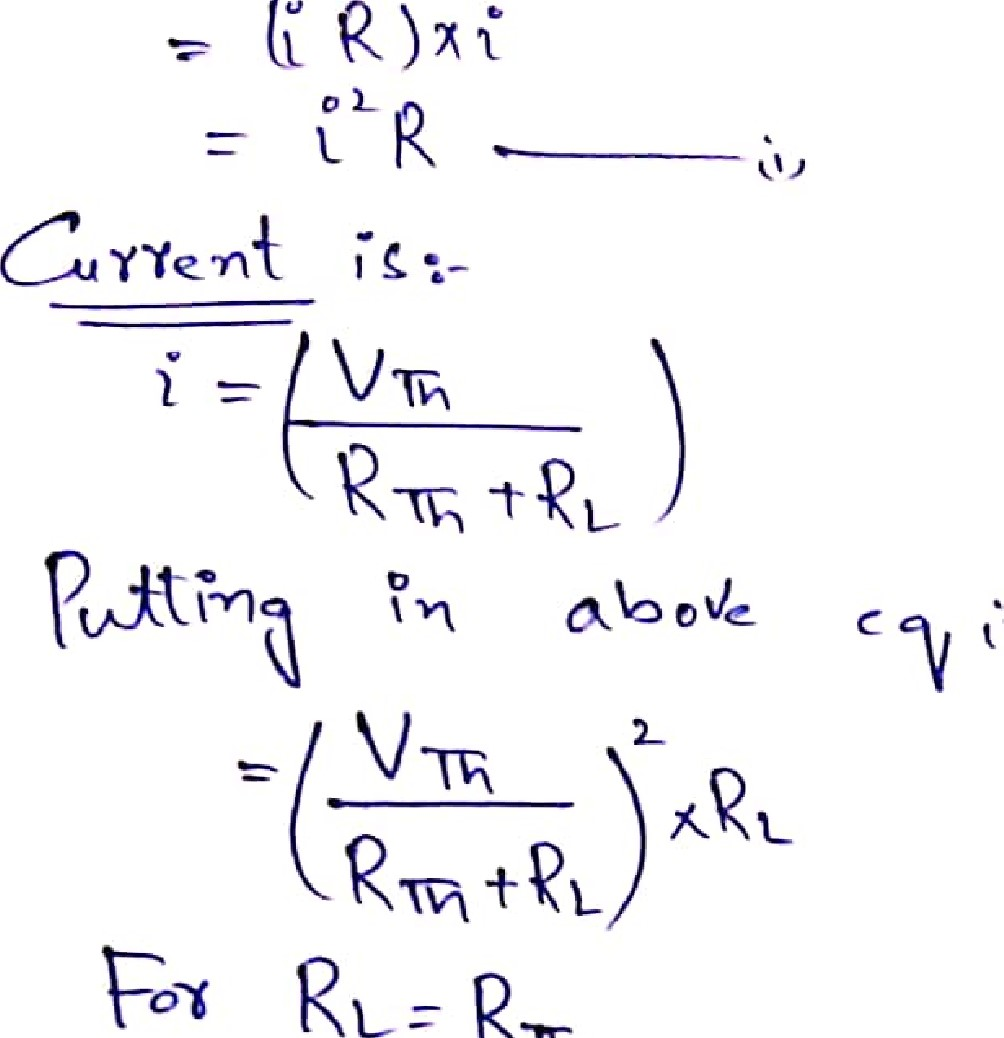 = (i R) x i
= i² R ——— (i)
Current is :-
i = (V_Th / (R_Th + R_L))
Putting in above eq i
= (V_Th / (R_Th + R_L))² x R_L
For R_L = R